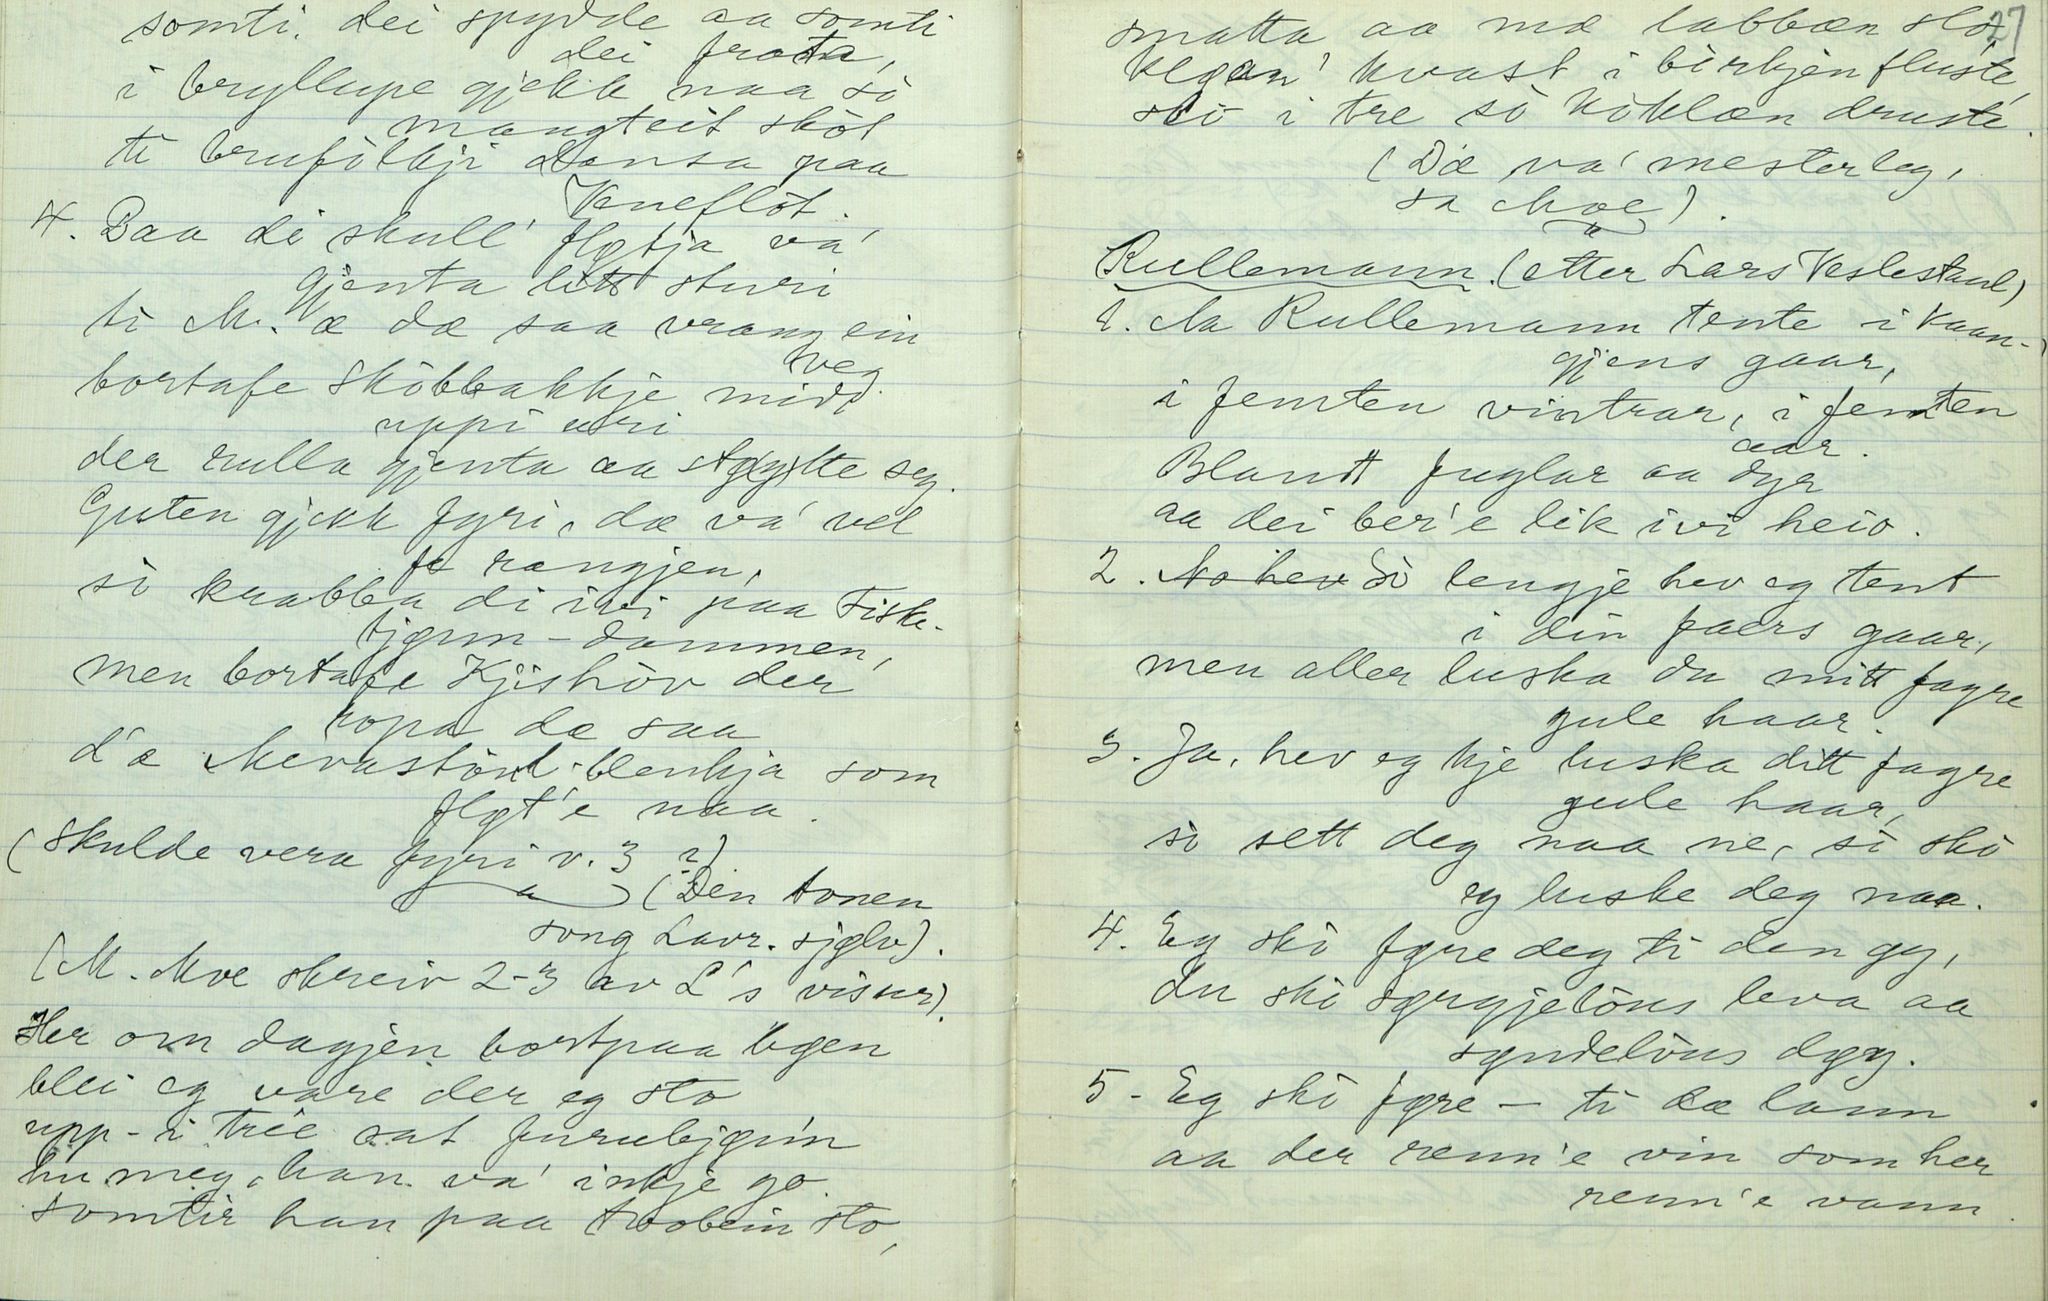 somti. dei spydde aa somti
dei frata,
i bryllupe gjekk naa so
mangteit sköt
ti brufölkji dansa paa
Veneflöt.
4. Paa di skull' flytja va'
gjenta litt sturi
ti M. æ dæ saa vrang ein
veg
bortafe Sköbbakkje midt
uppi uri
der rulla gjenta aa støytte seg.
Guten gjekk fyri, dæ va' vel
fe rangjen,
so krabba di ivi paa Fiske-
tjønn-dammen,
men bortafe Kjishöv der
ropa dæ saa
d'æ Mevastöul-blenkja som
fløt'e naa.
(Skulde vera fyri v. 3 ?)
(Den tonen
song Lavr. sjølv).
(M. Moe skreiv 2-3 av L's visur).
Her om dagjen bortpaa Ögen
blei eg vare der eg sto
upp-i trie sat furubjønn
hu meg, han va' inkje go.
somtir han paa tvobein sto,
27
smatta aa mæ labbæn slo,
kvast i birkjen fluste,
sto i tre so köklæn druste.
(Dæ va' mesterleg,
sa Moe).
Rullemann. (etter Lars Veslestaul)
1. Aa Rullemann tente i Kaan-
gjens gaar,
i femten vintrar, i femten
aar.
Blandt fuglar aa dyr
aa dei ber'e lik ivi heio.
2. No hev So lengje hev eg tent
i din faers gaar,
men aller luska du mitt fagre
gule haar.
3. Ja, hev eg kje luska ditt fagre
gule haar,
so sett deg naa ne, so sko
eg luske deg naa.
4. Eg sko føre deg ti den øy,
du sko sørgjelöus leva aa
syndelöus døy.
5 - Eg sko føre — ti dæ lann
aa der renn'e vin som her
renn'e vann.